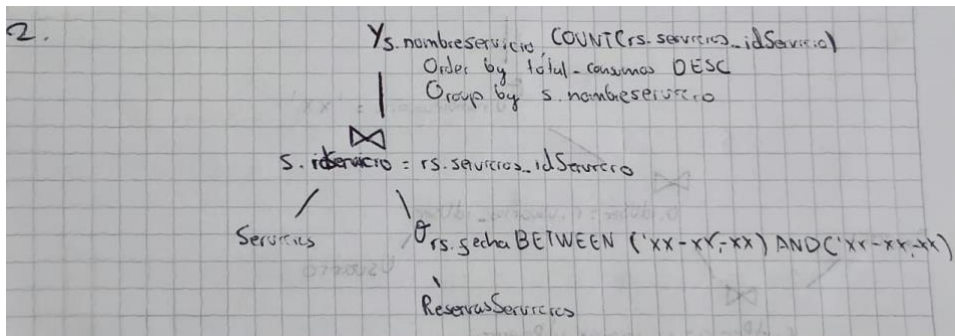 2.
γs.nombreservicio, COUNT(rs.servicios_idServicio)
Order by total-consumos DESC
Group by s.nombreservicio
⋈
s.idServicio = rs.servicios_idServicio
Servicios
σrs.fecha BETWEEN ('xx-xx-xx) AND ('xx-xx-xx)
ReservasServicios